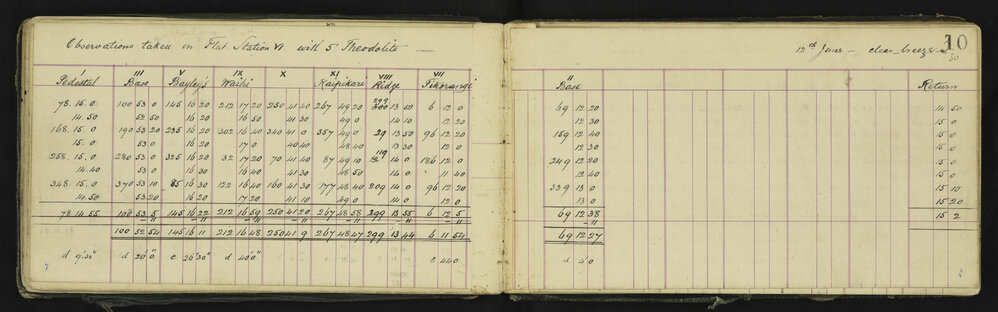 Observations taken on Flat Station VI with 5" Theodolite — 12th June — clear, breeze 10
I III V IX X XI VIII VII II
Pedestal Base Bayley's Waihi Kaipikari Ridge Tikorangi Base Return
78. 15. 0 100 53 0 145 16 20 212 17 20 250 41 40 267 49 20 299 13 50 6 12 0 69 12 20 14 50
14. 50 52 50 16 20 16 50 41 30 49 0 14 10 12 20 12 30 15 0
168. 15. 0 190 53 20 235 16 20 302 16 40 340 41 0 357 49 0 29 13 50 96 12 20 159 12 40 15 0
15. 0 53 0 16 20 17 0 40 40 48 40 13 30 12 0 12 30 15 0
258. 15. 0 280 53 0 325 16 20 32 17 20 70 41 40 87 49 10 119 14 0 186 12 0 249 12 20 15 0
14. 40 53 0 16 30 16 40 41 30 48 50 14 0 11 40 12 40 15 0
348. 15. 0 370 53 10 85 16 30 122 16 40 160 41 30 177 48 40 209 14 0 96 12 20 339 13 0 15 10
14. 50 53 20 16 20 17 20 41 10 49 0 14 0 12 0 13 0 15 20
78 14 55 100 53 5 145 16 22 212 16 59 250 41 20 267 48 58 299 13 55 6 12 5 69 12 38 15 2
– 11 – 11 – 11 – 11 – 11 – 11 – 11 – 11
100 52 54 145 16 11 212 16 48 250 41 9 267 48 47 299 13 44 6 11 54 69 12 27
d 20' 0" c 26' 30" d 40" c 4 40 d 4 0
7